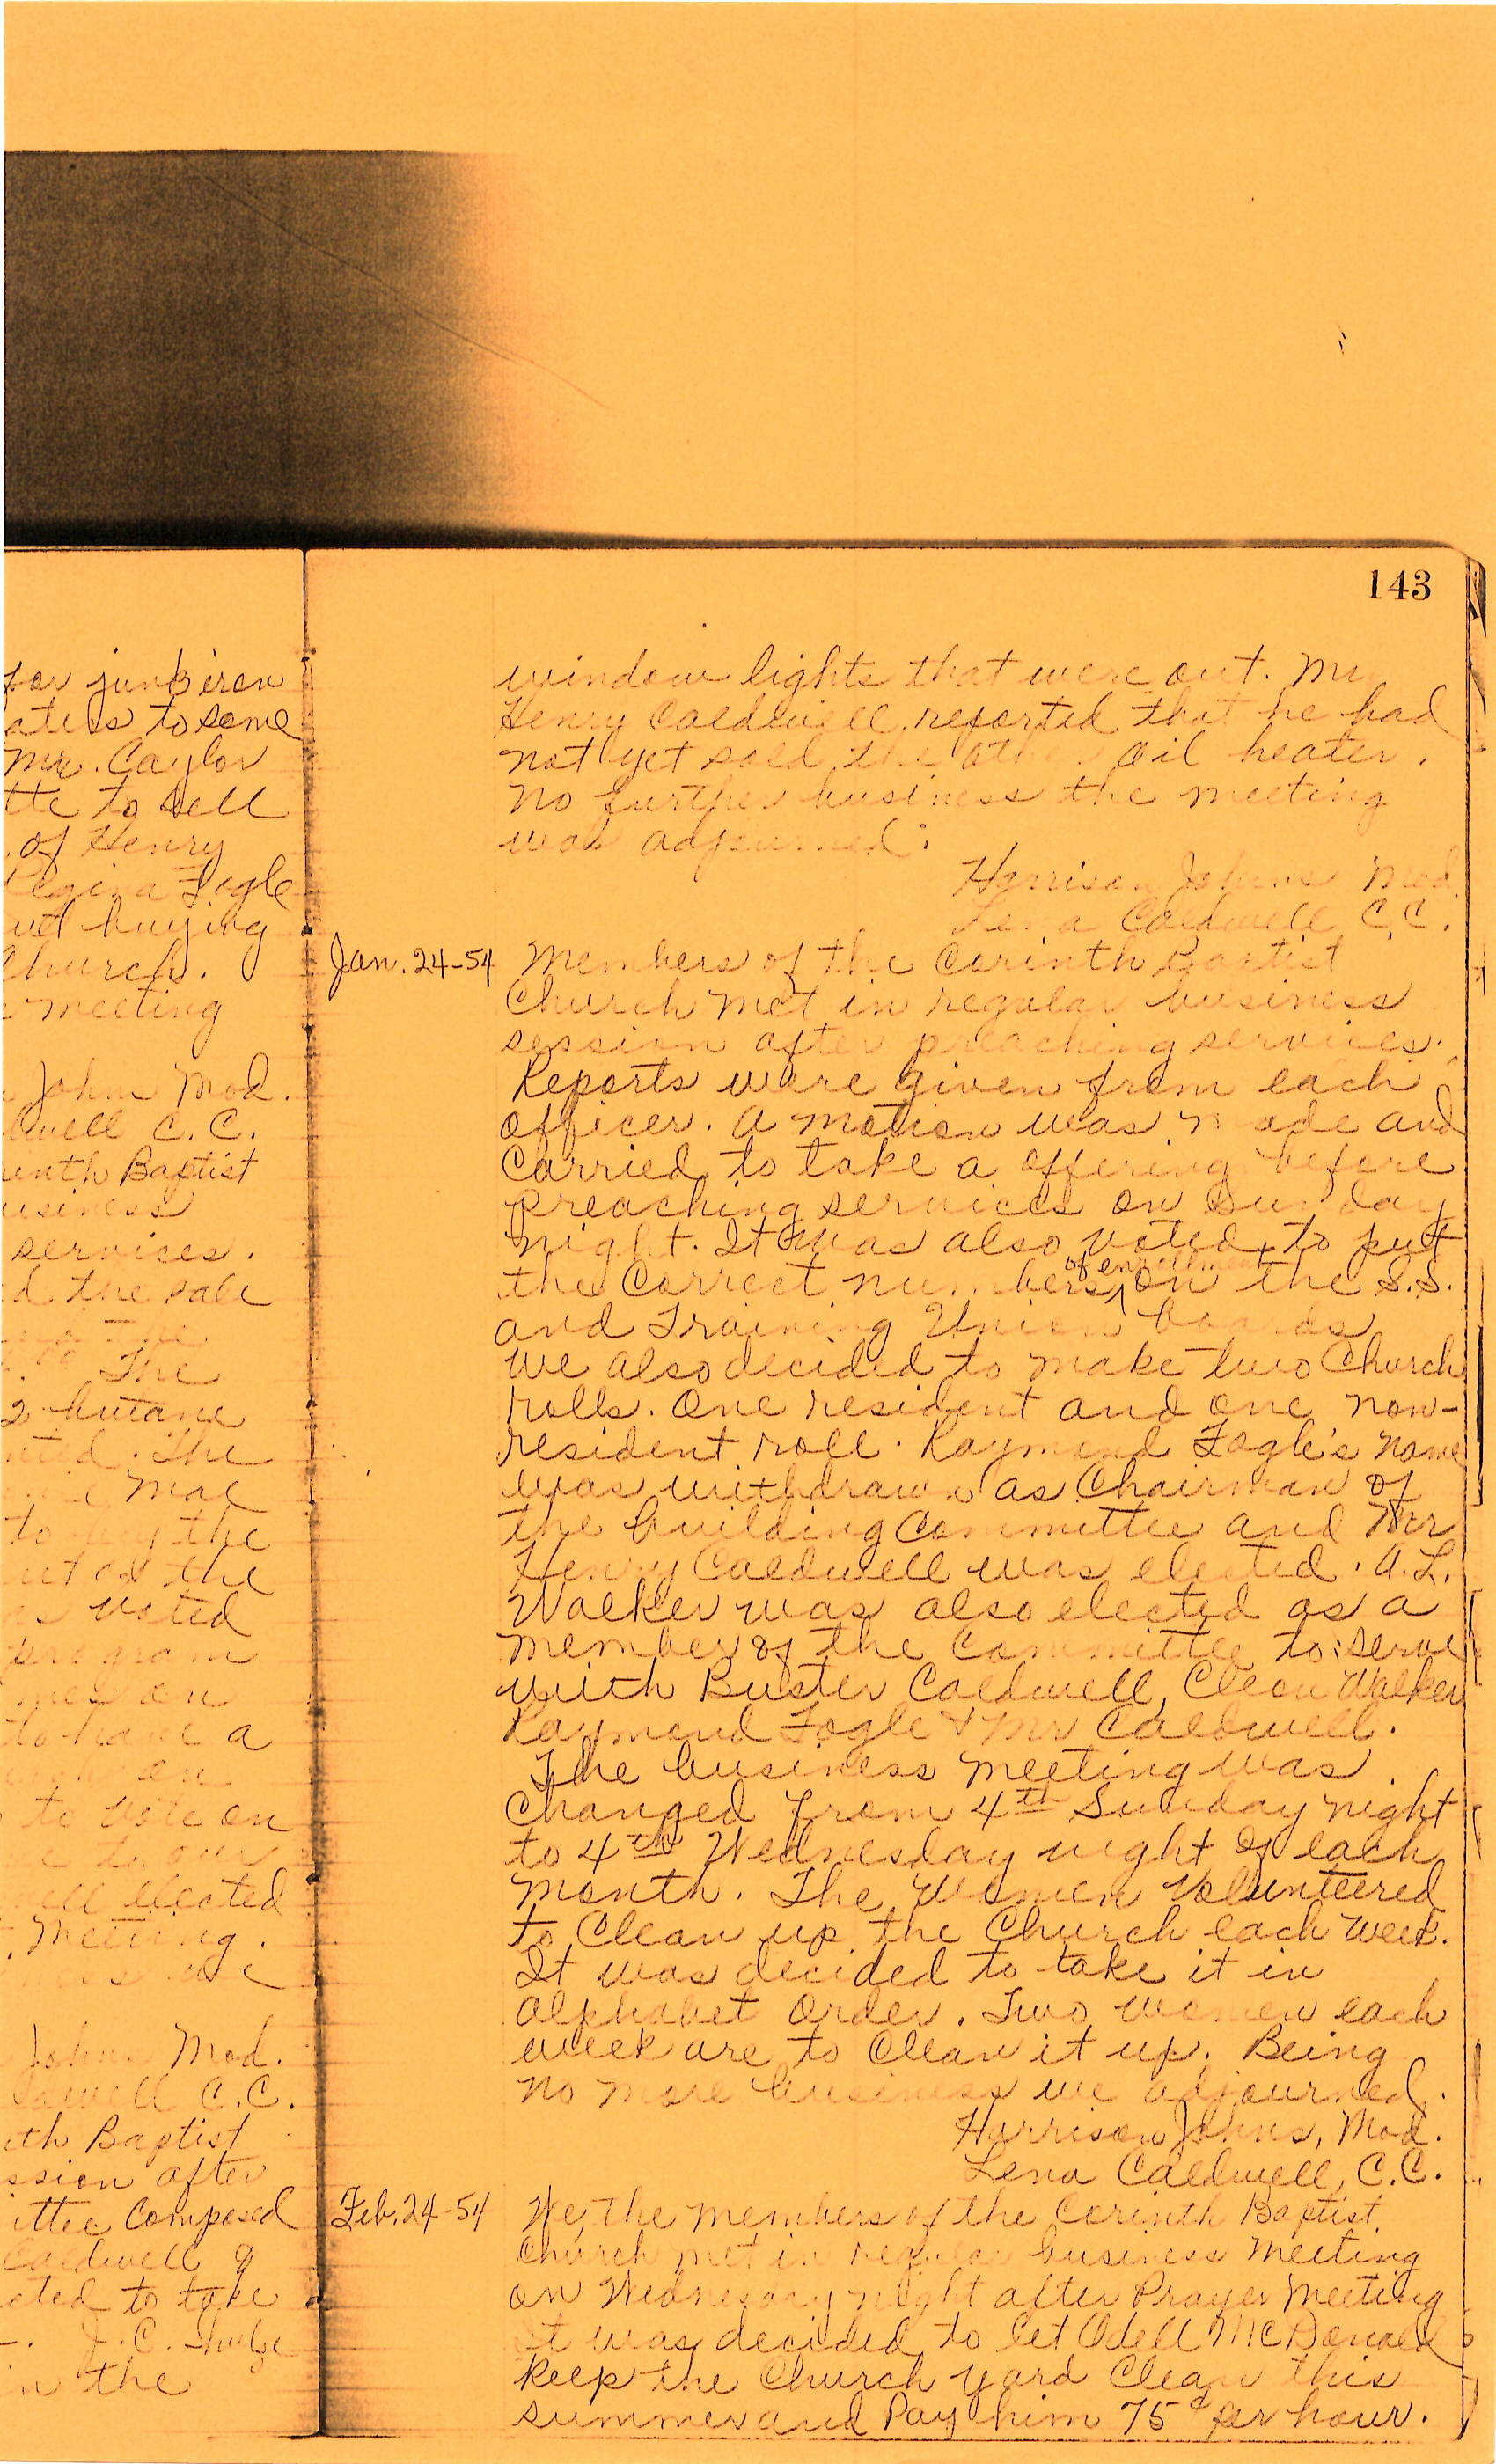 143
for junk iron
to some
Mr. Caylor
to sell
of Henry
Fogle
buying
Church.
meeting
Johns Mod.
C. C.
Baptist
services.
the sale
The
2 butane
The
Mac
to the
the
voted
program
to have a
to vote on
elected
Meeting.
Johns Mod.
C.C.
Baptist
after
Composed
Caldwell &
to take
J.C.
the
window lights that were out. Mr
Henry Caldwell reported that he had
not yet sold the other oil heater.
No further business the meeting
was adjourned.
Harrison Johns Mod.
Lena Caldwell C.C.
Jan. 24-54 Members of the Corinth Baptist
Church met in regular business
session after preaching services.
Reports were given from each
officer. A motion was made and
Carried to take a offering before
preaching services on Sunday
night. It was also voted to put
the Correct numbers of enrollment on the S.S.
and Training Union boards
We also decided to make two Church
rolls. One resident and one non-
resident roll. Raymond Fogle's name
was withdrawn as Chairman of
the building Committee and Mr
Henry Caldwell was elected. A.L.
Walker was also elected as a
member of the Committee to serve
with Buster Caldwell, Cleon Walker
Raymond Fogle & Mr Caldwell.
The business meeting was
Changed from 4th Sunday night
to 4th Wednesday night of each
month. The women volunteered
to Clean up the Church each week.
It was decided to take it in
alphabet order. Two women each
week are to Clean it up. Being
no more business we adjourned.
Harrison Johns, Mod.
Lena Caldwell, C.C.
Feb. 24-54 We, the members of the Corinth Baptist
Church met in regular business Meeting
on Wednesday night after Prayer Meeting
It was decided to let Odell McDonald
keep the Church yard Clean this
summer and Pay him 75¢ per hour.